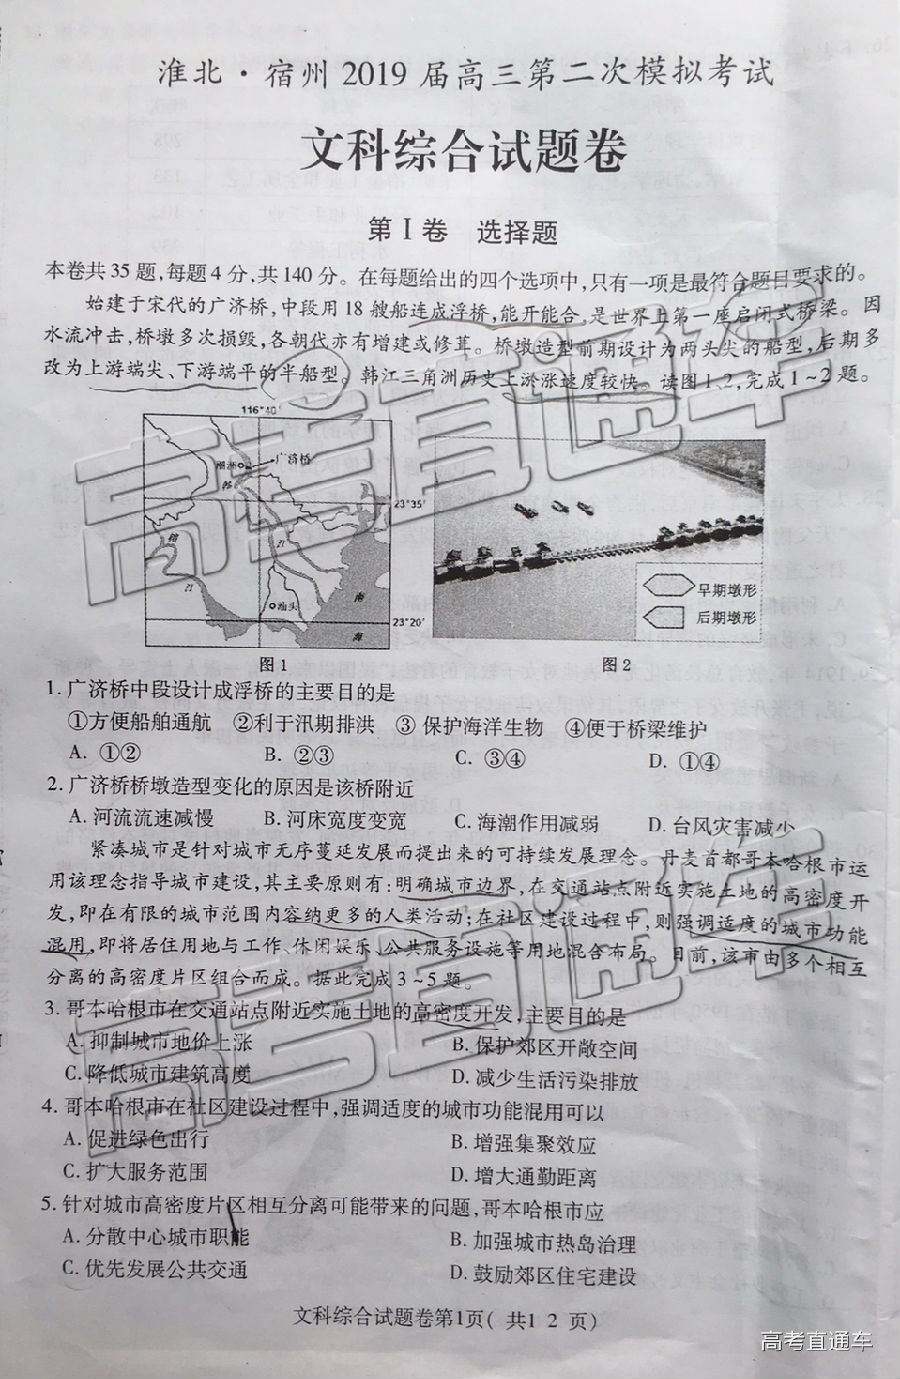 淮北·宿州2019届高三第二次模拟考试
文科综合试题卷
第Ⅰ卷 选择题
本卷共35题,每题4分,共140分。在每题给出的四个选项中,只有一项是最符合题目要求的。
始建于宋代的广济桥,中段用18艘船连成浮桥,能开能合,是世界上第一座启闭式桥梁。因
水流冲击,桥墩多次损毁,各朝代亦有增建或修葺。桥墩造型前期设计为两头尖的船型,后期多
改为上游端尖、下游端平的半船型。韩江三角洲历史上淤涨速度较快。读图1、2,完成1~2题。
116°40′
潮州
广济桥
韩
江
23°35′
榕
江
汕头
南
海
23°20′
早期墩形
后期墩形
图1
图2
1. 广济桥中段设计成浮桥的主要目的是
①方便船舶通航 ②利于汛期排洪 ③保护海洋生物 ④便于桥梁维护
A. ①② B. ②③ C. ③④ D. ①④
2. 广济桥桥墩造型变化的原因是该桥附近
A. 河流流速减慢 B. 河床宽度变宽 C. 海潮作用减弱 D. 台风灾害减少
紧凑城市是针对城市无序蔓延发展而提出来的可持续发展理念。丹麦首都哥本哈根市运
用该理念指导城市建设,其主要原则有:明确城市边界,在交通站点附近实施土地的高密度开
发,即在有限的城市范围内容纳更多的人类活动;在社区建设过程中,则强调适度的城市功能
混用,即将居住用地与工作、休闲娱乐、公共服务设施等用地混合布局。目前,该市由多个相互
分离的高密度片区组合而成。据此完成3~5题。
3. 哥本哈根市在交通站点附近实施土地的高密度开发,主要目的是
A. 抑制城市地价上涨 B. 保护郊区开敞空间
C. 降低城市建筑高度 D. 减少生活污染排放
4. 哥本哈根市在社区建设过程中,强调适度的城市功能混用可以
A. 促进绿色出行 B. 增强集聚效应
C. 扩大服务范围 D. 增大通勤距离
5. 针对城市高密度片区相互分离可能带来的问题,哥本哈根市应
A. 分散中心城市职能 B. 加强城市热岛治理
C. 优先发展公共交通 D. 鼓励郊区住宅建设
文科综合试题卷第1页( 共1 2 页)
高考直通车
高考直通车
高考直通车